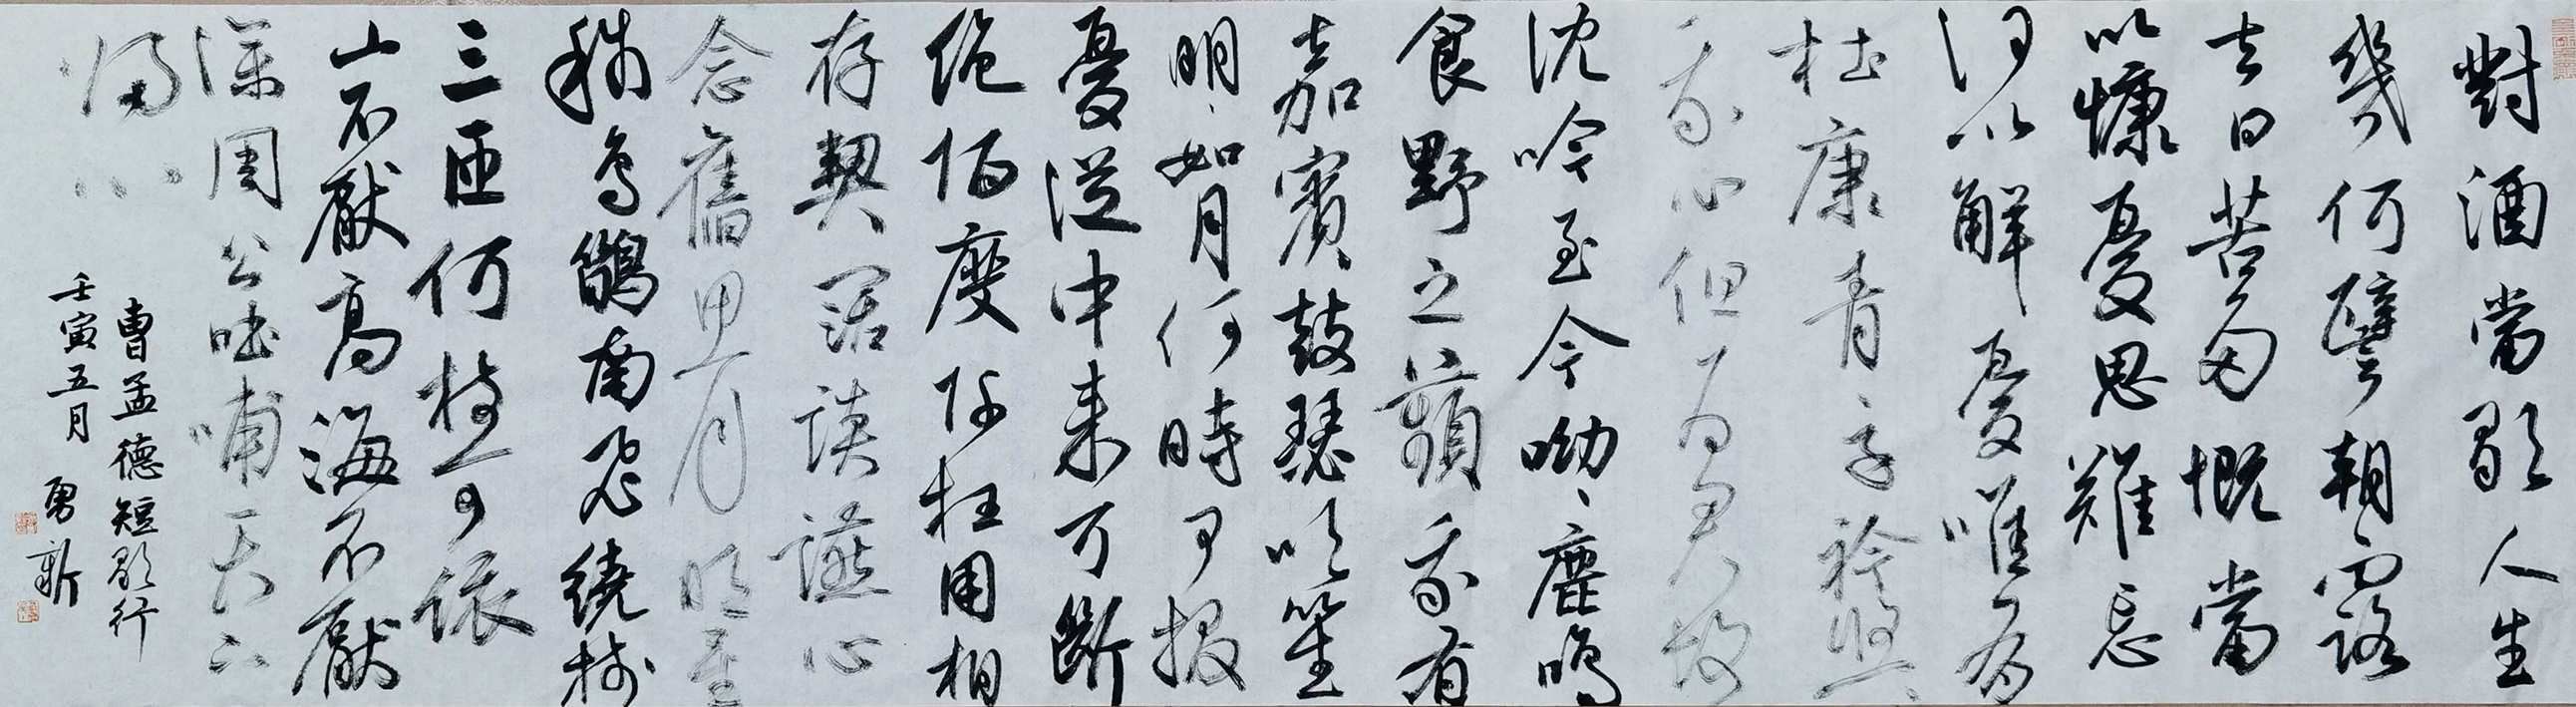 對酒當歌人生
幾何譬朝露
去日苦多慨當
以慷憂思難忘
何以解憂唯有
杜康青子衿悠
我心但為君故
沈吟至今呦、鹿鳴
食野之蘋我有
嘉賓鼓瑟吹笙
明、如月何時可掇
憂從中來不可斷
絕陌度阡枉用相
存契闊談讌心
念舊恩月明星
稀烏鵲南飛繞樹
三匝何枝可依
山不厭高海不厭
深周公吐哺天下
歸心
曹孟德短歌行
壬寅五月 勇新